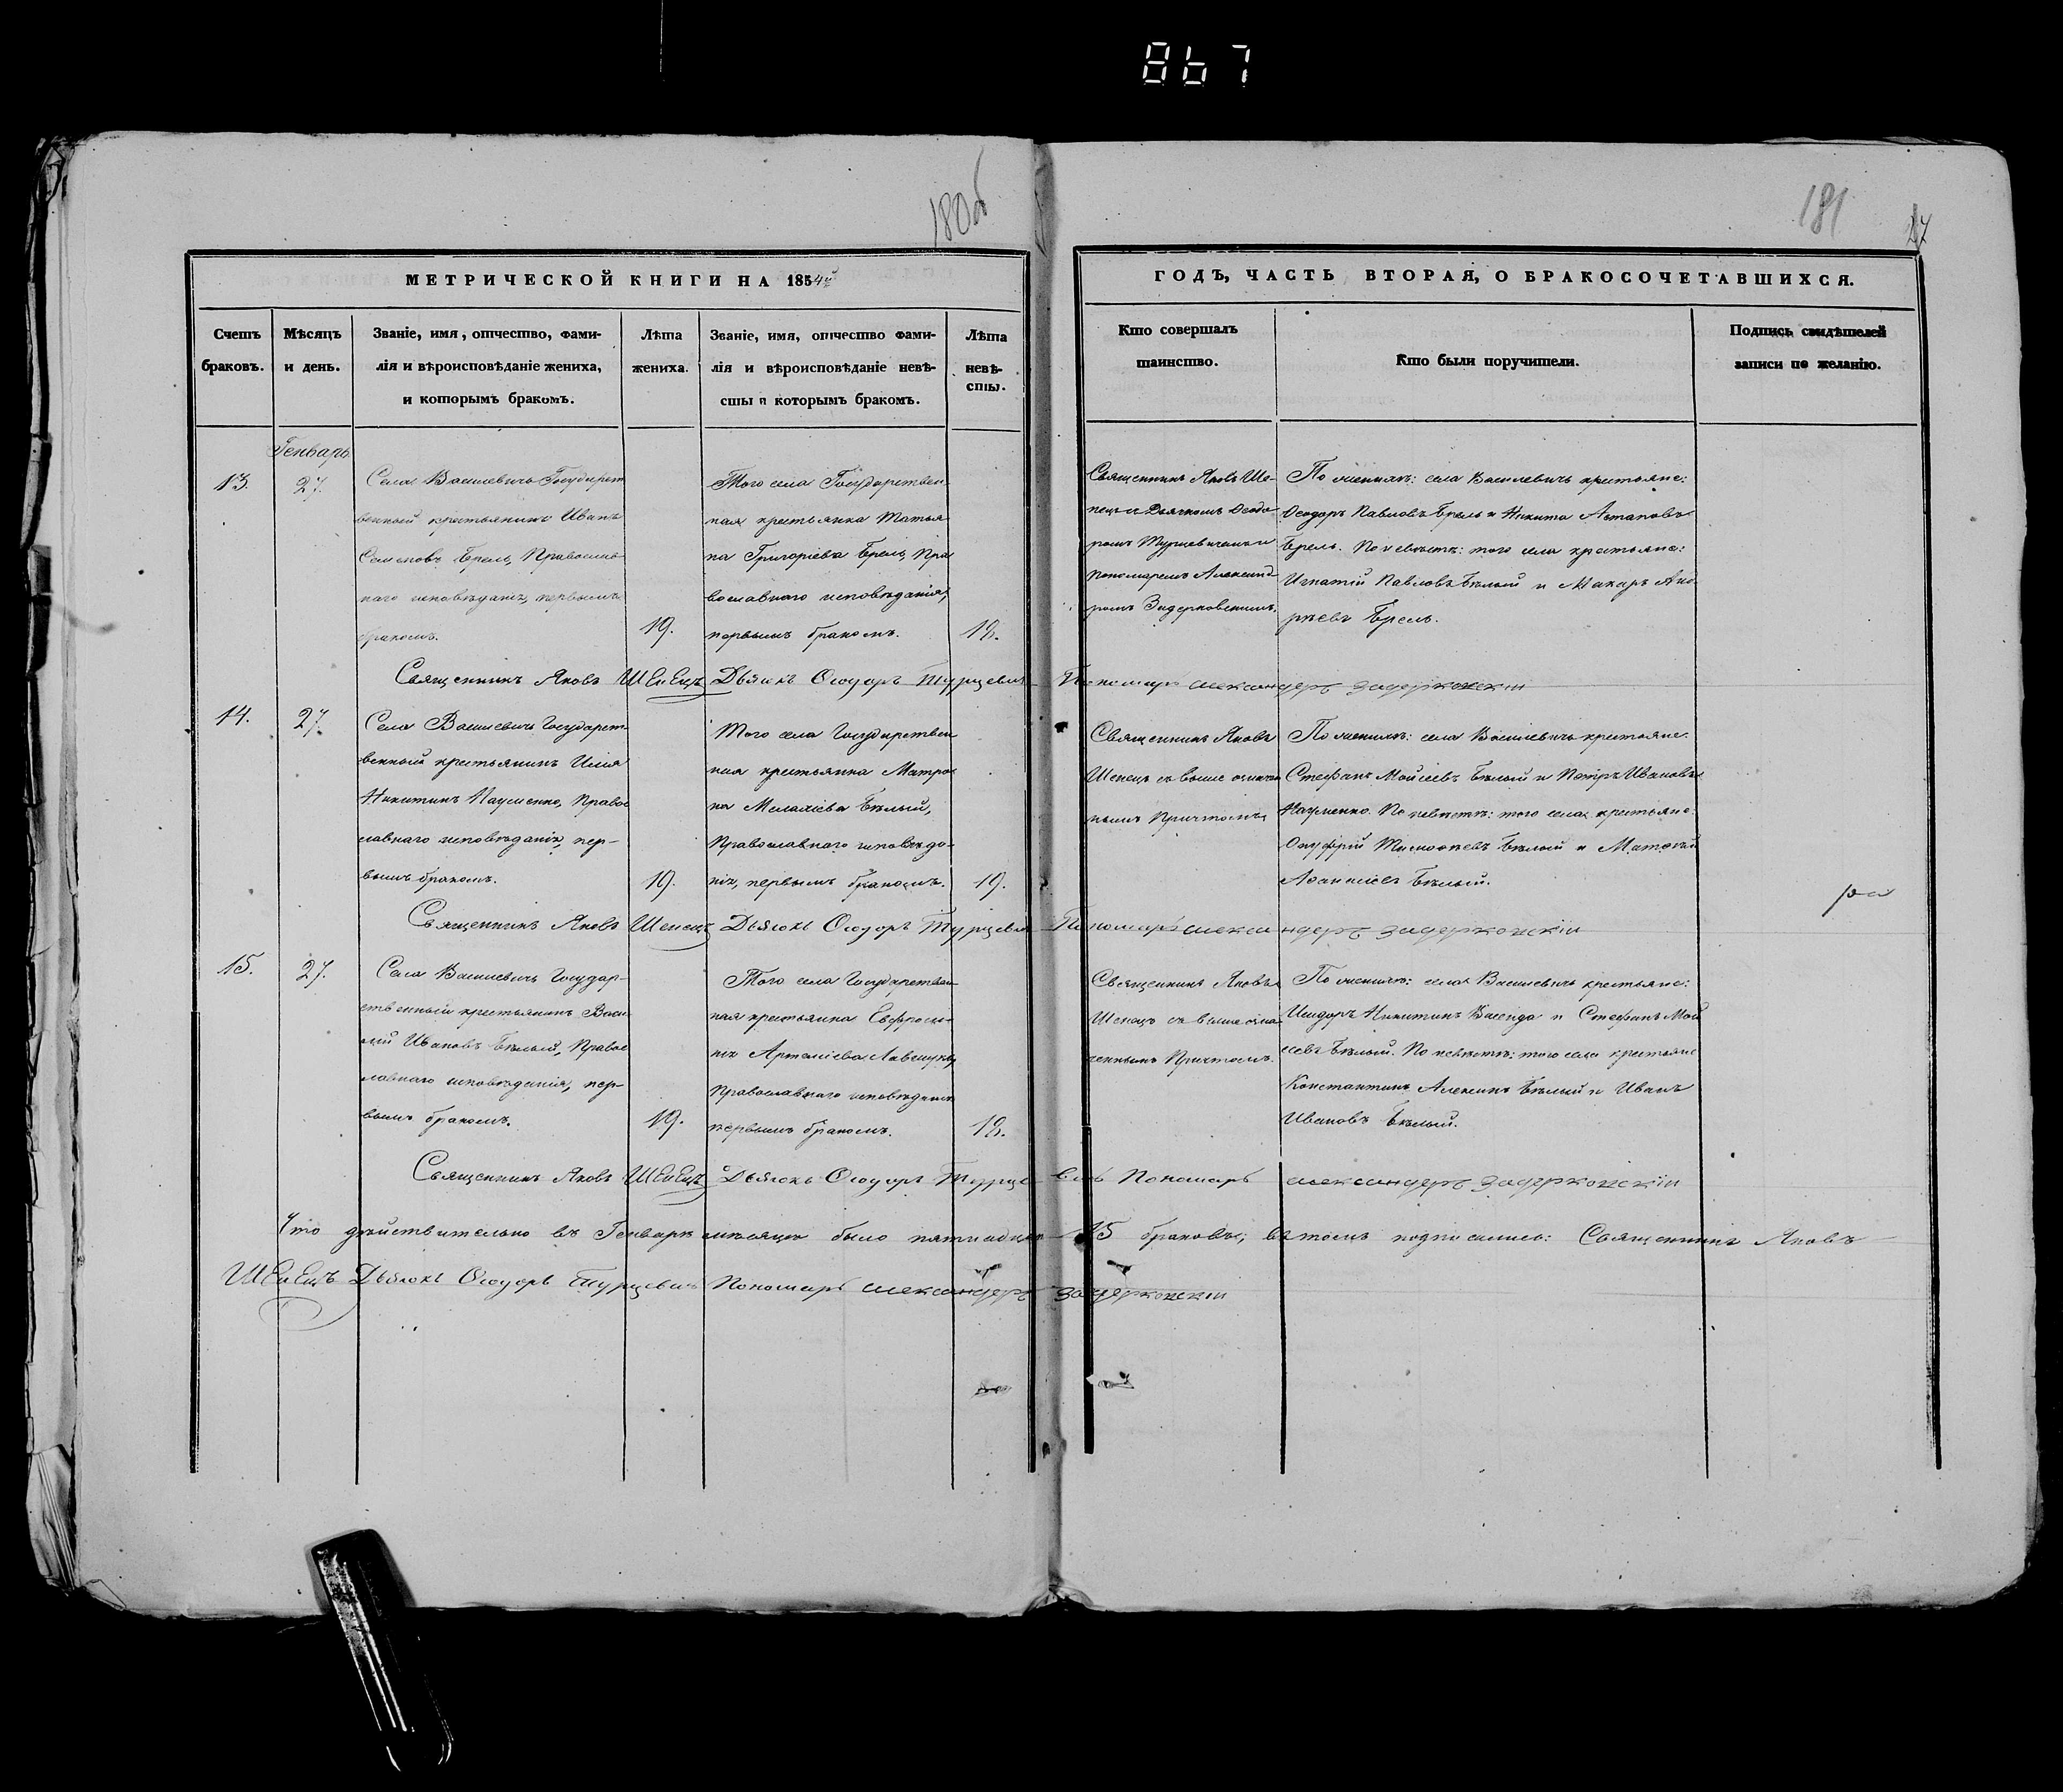 867
180об
181
27
МЕТРИЧЕСКОЙ КНИГИ НА 1854й
ГОДЪ, ЧАСТЬ ВТОРАЯ, О БРАКОСОЧЕТАВШИХСЯ.
Счетъ браковъ.
Мѣсяцъ и день.
Званіе, имя, отчество, фами-
лія и вѣроисповѣданіе жениха,
и которымъ бракомъ.
Лѣта
жениха.
Званіе, имя, отчество фами-
лія и вѣроисповѣданіе невѣ-
сты и которымъ бракомъ.
Лѣта
невѣ-
сты.
Кто совершалъ
таинство.
Кто были поручители.
Подпись свидѣтелей
записи по желанію.
Генварь
13.
27.
Села Василевичь Государст
венный крестьянинъ Иванъ
Семеновъ Брель, Православ
наго исповѣданія, первымъ
бракомъ.
19.
Того села Государствен
ная крестьянка Татья
на Григоріева Брель, Пра
вославнаго исповѣданія,
первымъ бракомъ.
18.
Священникъ Яковъ Ше-
пецъ съ Дьячкомъ Ѳеодо
ромъ Турцевичемъ и
Пономаремъ Александ
ромъ Задерковскимъ.
По женихѣ: села Василевичь крестьяне:
Ѳеодоръ Павловъ Брель и Никита Астаповъ
Брель. По невѣстѣ: того села крестьяне:
Игнатій Павловъ Бѣлый и Макаръ Анд
рѣевъ Брель.
Священникъ Яковъ Шепецъ Дьячокъ Ѳеодоръ Турцевичъ Пономарь Александеръ Задерковскій
14.
27.
Села Василевичь Государст
венный крестьянинъ Илія
Никитинъ Науменко, Правос
лавнаго исповѣданія, пер-
вымъ бракомъ.
19.
Того села Государствен
ная крестьянка Матро
на Бѣлый,
Православнаго исповѣда-
нія, первымъ бракомъ.
19.
Священникъ Яковъ
Шепецъ съ выше означен
нымъ Причтомъ
По женихѣ: села Василевичь крестьяне:
Стефанъ Мойсіевъ Бѣлый и Петръ Ивановъ
Науменко. По невѣстѣ: того села крестьяне:
Онуфрій Тимофеевъ Бѣлый и Матѳей
Аѳанасіевъ Бѣлый.
Священникъ Яковъ Шепецъ Дьячокъ Ѳеодоръ Турцевичъ Пономарь Александеръ Задерковскій
15.
27.
Села Василевичь Государ-
ственный крестьянинъ Васи
лій Ивановъ Бѣлый, Правос
лавнаго исповѣданія, пер-
вымъ бракомъ.
19.
Того села Государствен
ная крестьянка Евфроси-
нія Артеміева
Православнаго исповѣданія
первымъ бракомъ.
18.
Священникъ Яковъ
Шепецъ съ выше озна
ченнымъ Причтомъ.
По женихѣ: села Василевичь крестьяне:
Исидоръ Никитинъ и Стефанъ Мой
сіевъ Бѣлый. По невѣстѣ: того села крестьяне
Константинъ Бѣлый и Иванъ
Ивановъ Бѣлый.
Священникъ Яковъ Шепецъ Дьячокъ Ѳеодоръ Турцевичъ Пономарь Александеръ Задерковскій
Что дѣйствительно въ Генварѣ мѣсяцѣ было пятнадцать 15 браковъ; въ томъ подписались: Священникъ Яковъ
Шепецъ Дьячокъ Ѳеодоръ Турцевичъ Пономарь Александеръ Задерковскій